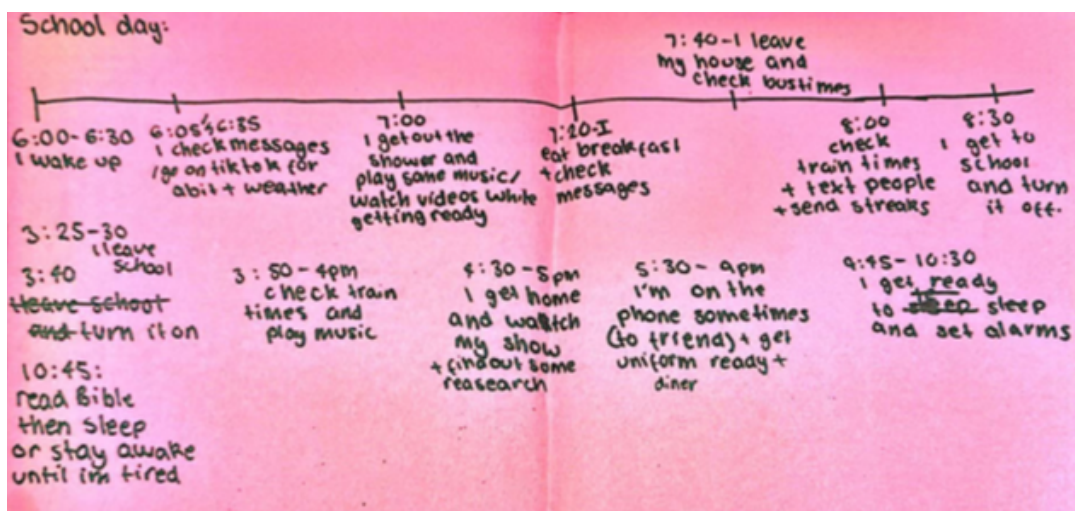 School day:
7:40-I leave
my house and
check bustimes
6:00-6:30
I wake up
6:05/6:35
I check messages
/go on tiktok for
abit + weather
7:00
I get out the
shower and
play some music/
watch videos while
getting ready
7:20-I
eat breakfast
+check
messages
8:00
check
train times
+ text people
+send streaks
8:30
I get to
school
and turn
it off.
3:25-30
I leave
school
3:40
I leave school
and turn it on
3:50-4pm
check train
times and
play music
4:30-5pm
I get home
and watch
my show
+ find out some
reasearch
5:30-9pm
I'm on the
phone sometimes
(to friend) + get
uniform ready +
diner
9:45-10:30
I get ready
to sleep
and set alarms
10:45:
read Bible
then sleep
or stay awake
until im tired